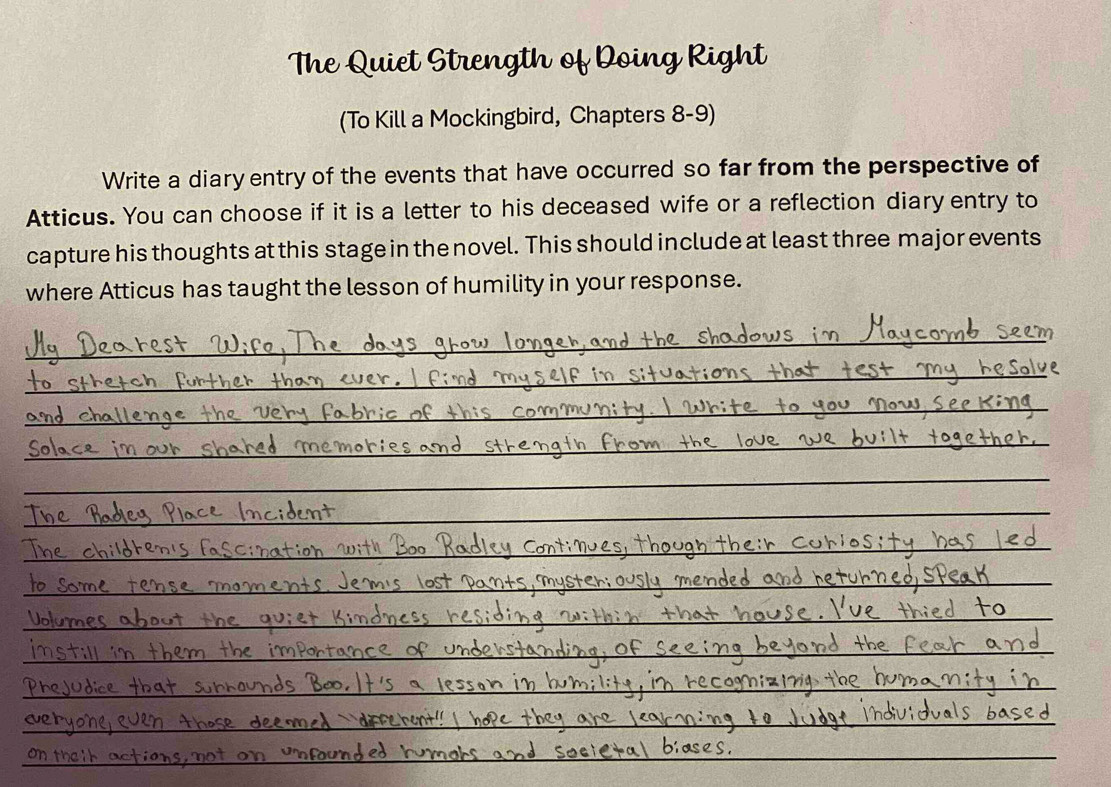 The Quiet Strength of Doing Right
(To Kill a Mockingbird, Chapters 8-9)
Write a diary entry of the events that have occurred so far from the perspective of
Atticus. You can choose if it is a letter to his deceased wife or a reflection diary entry to
capture his thoughts at this stage in the novel. This should include at least three major events
where Atticus has taught the lesson of humility in your response.
My Dearest Wife, The days grow longer, and the shadows in Maycomb seem
to stretch further than ever. I find myself in situations that test my resolve
and challenge the very fabric of this community. I write to you now, seeking
solace in our shared memories and strength from the love we built together.
The Radley Place Incident
The children's fascination with Boo Radley continues, though their curiosity has led
to some tense moments. Jem's lost pants, mysteriously mended and returned, speak
volumes about the quiet kindness residing within that house. I've tried to
instill in them the importance of understanding, of seeing beyond the fear and
prejudice that surrounds Boo. It's a lesson in humility, in recognizing the humanity in
everyone, even those deemed "different"! I hope they are learning to judge individuals based
on their actions, not on unfounded rumors and societal biases.